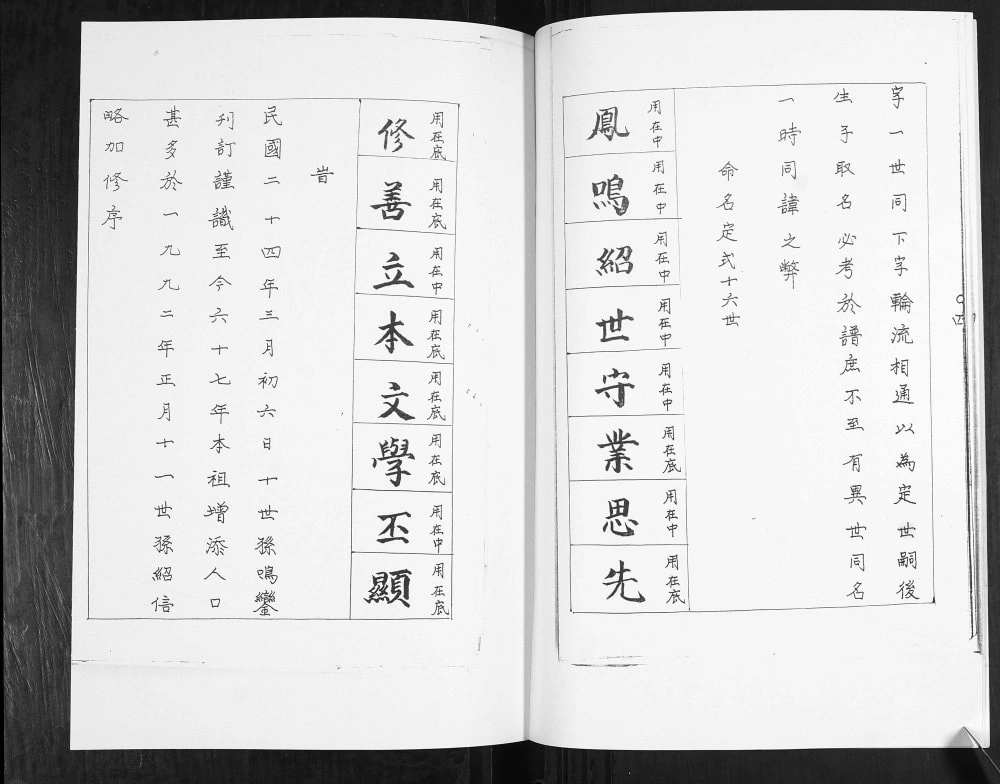 字一世同下字輪流相通以為定世嗣後
生子取名必考於譜庶不至有異世同名
一時同諱之弊
命名定式十六世
鳳 用在中
鳴 用在中
紹 用在中
世 用在中
守 用在中
業 用在底
思 用在中
先 用在底
修 用在底
善 用在底
立 用在中
本 用在底
文 用在底
學 用在底
丕 用在中
顯 用在底
旹
民國二十四年三月初六日十世孫鳴鑾
刊訂謹識至今六十七年本祖增添人口
甚多於一九九二年正月十一世孫紹信
略加修序